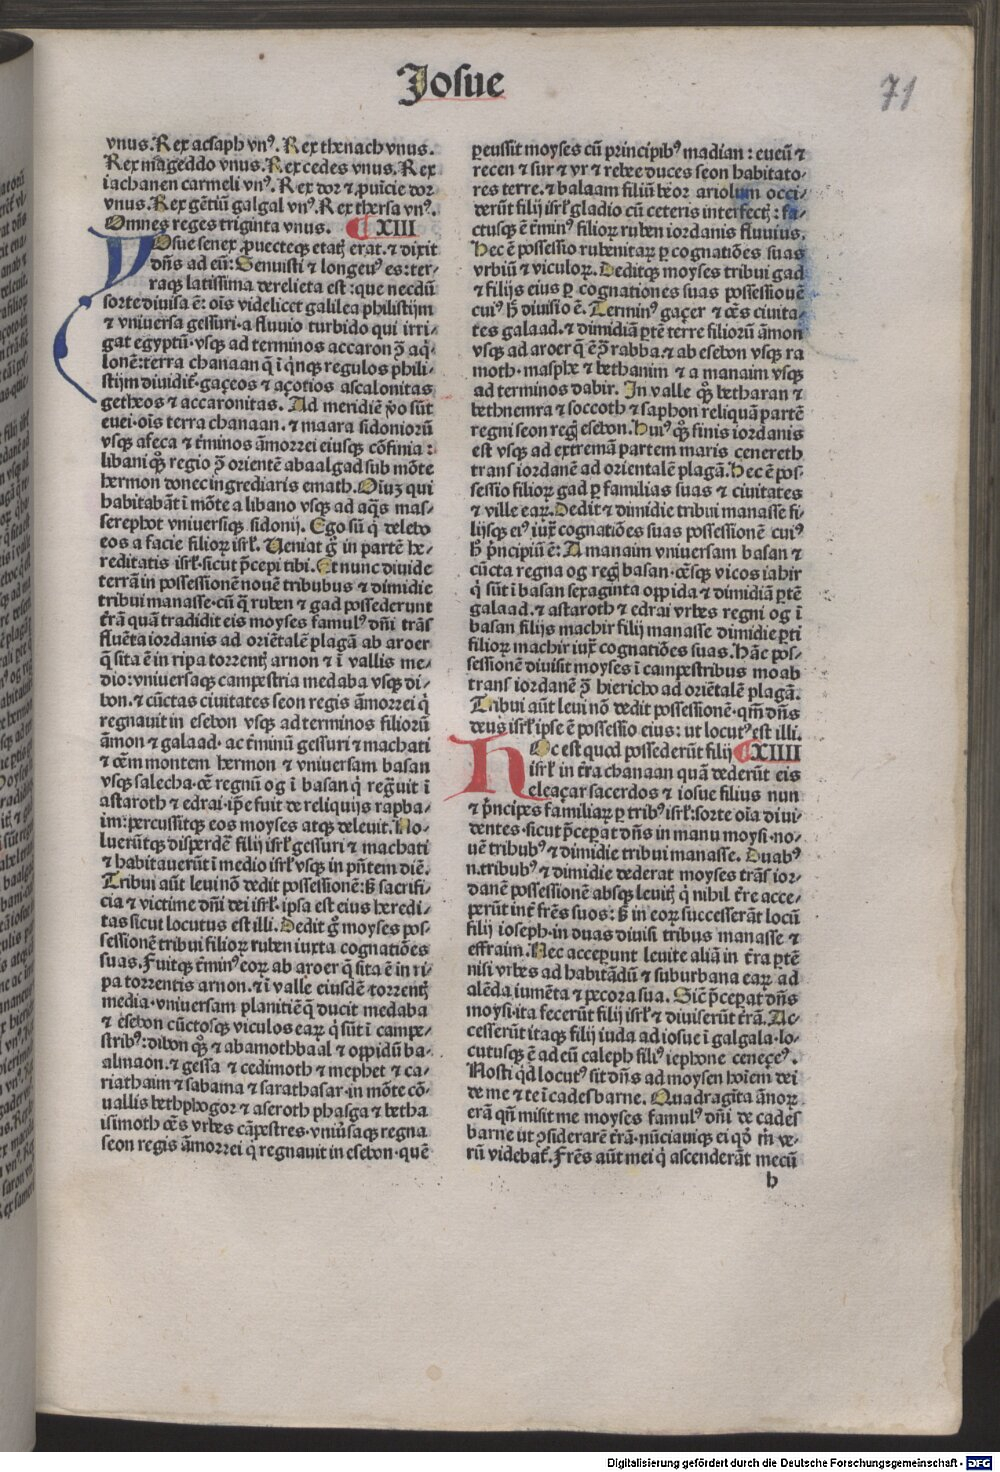 Josue
71
vnus. Rex acsaph vnꝰ. Rex thenach vnus.
Rex mageddo vnus. Rex cedes vnus. Rex
iachanen carmeli vnꝰ. Rex dor ⁊ ꝓuīcie dor
vnus. Rex gētiū galgal vnꝰ. Rex thersa vnꝰ.
Omnes reges triginta vnus. XIII
Josue senex ꝓuecteqꝫ etatꝭ erat. ⁊ dixit
dn̄s ad eū: Senuisti ⁊ longeuꝰ es: ter⸗
raqꝫ latissima derelicta est: que necdū
sorte diuisa ē: oīs videlicet galilea philistijm
⁊ vniuersa gessuri. a fluuio turbido qui irri⸗
gat egyptū. vsqꝫ ad terminos accaron ꝯ̄ aq̇⸗
lonē: terra chanaan q̄ ī q̇nqꝫ regulos phili⸗
stijm diuidit̄. gaçeos ⁊ açotios ascalonitas
getheos ⁊ accaronitas. Ad meridiē v̊o sūt
euei. oīs terra chanaan. ⁊ maara sidoniorū
vsqꝫ afeca ⁊ t̄minos āmorrei eiusqꝫ cōfinia :
libani qꝫ regio ꝯ̄ orientē abaalgad sub mōte
hermon donec ingrediaris emath. Oīuꝫ qui
habitabāt ī mōte a libano vsqꝫ ad aq̄s mas⸗
serephot vniuersiqꝫ sidonij. Ego sū q̇ delebo
eos a facie filioꝝ isrl̄. Veniat g̊ in partē he⸗
reditatis isrl̄. sicut p̄cepi tibi. Et nunc diuide
terrā in possessionē nouē tribubus ⁊ dimidie
tribui manasse. cū q̄ ruben ⁊ gad possederunt
t̄rā quā tradidit eis moyses famulꝰ dn̄i trās
fluēta iordanis ad oriētalē plagā ab aroer
q̄ sita ē in ripa torrentꝭ arnon ⁊ ī vallis me⸗
dio: vniuersaqꝫ campestria medaba vsqꝫ di⸗
bon. ⁊ cūctas ciuitates seon regis āmorrei q̇
regnauit in esebon vsqꝫ ad terminos filiorū
āmon ⁊ galaad. ac t̄minū gessuri ⁊ machati
⁊ oēm montem hermon ⁊ vniuersam basan
vsqꝫ salecha. oē regnū og ī basan q̇ reg̊uit ī
astaroth ⁊ edrai. ip̄e fuit de reliquijs rapha⸗
im: percussitqꝫ eos moyses atqꝫ deleuit. No⸗
luerūtqꝫ disperdē filij isrl̄ gessuri ⁊ machati
⁊ habitauerūt ī medio isrl̄ vsqꝫ in pn̄tem diē.
Tribui aūt leui nō dedit possessionē: sꝫ sacrifi⸗
cia ⁊ victime dn̄i dei isrl̄. ipsa est eius heredi⸗
tas sicut locutus est illi. Dedit g̊ moyses pos⸗
sessionē tribui filioꝝ ruben iuxta cognatiōes
suas. Fuitqꝫ t̄minꝰ eoꝝ ab aroer q̄ sita ē in ri⸗
pa torrentis arnon. ⁊ ī valle eiusdē torrentꝭ
media. vniuersam planitiē q̄ ducit medaba
⁊ esebon cūctosqꝫ viculos eaꝝ q̇ sūt ī campe⸗
stribꝰ: dibon qꝫ ⁊ abamothbaal ⁊ oppidū ba⸗
almaon. ⁊ gessa ⁊ cedimoth ⁊ mephet ⁊ ca⸗
riathaim ⁊ sabama ⁊ sarathasar. in mōte cō⸗
uallis bethphogor ⁊ aseroth phasga ⁊ betha
isimoth oēs vrbes cāpestres. vniūsaqꝫ regna
seon regis āmorrei q̇ regnauit in esebon. quē
percussit moyses cū principibꝰ madian: eueū ⁊
recen ⁊ sur ⁊ vr ⁊ rebee duces seon habitato⸗
res terre. ⁊ balaam filiū beor ariolum occi⸗
derūt filij isrl̄ gladio cū ceteris interfectꝭ: fa⸗
ctusqꝫ ē t̄minꝰ filioꝝ ruben iordanis fluuius.
Hec ē possessio rubenitaꝝ ꝑ cognatiōes suas
vrbiū ⁊ viculoꝝ. Deditqꝫ moyses tribui gad
⁊ filijs eius ꝑ cognationes suas possessionē
cuiꝰ hꝫ diuisio ē. Terminꝰ gaçer ⁊ oēs ciuita⸗
tes galaad. ⁊ dimidiā ꝑtē terre filiorū āmon
vsqꝫ ad aroer q̄ ē ꝯ̄ rabba. ⁊ ab esebon vsqꝫ ra
moth. masphe ⁊ bethanim ⁊ a manaim vsqꝫ
ad terminos dabir. In valle qꝫ betharan ⁊
bethnemra ⁊ soccoth ⁊ saphon reliquā partē
regni seon regꝭ esebon. Huiꝰ qꝫ finis iordanis
est vsqꝫ ad extremā partem maris cenereth
trans iordanē ad orientalē plagā. Hec ē pos⸗
sessio filioꝝ gad ꝑ familias suas ⁊ ciuitates
⁊ ville eaꝝ. Dedit ⁊ dimidie tribui manasse fi⸗
lijsqꝫ eiꝰ iuxͣ cognatiōes suas possessionē cuiꝰ
hꝫ p̄ncipiū ē: A manaim vniuersam basan ⁊
cūcta regna og regꝭ basan. oēsqꝫ vicos iahir
q̇ sūt ī basan sexaginta oppida ⁊ dimidiā ꝑtē
galaad. ⁊ astaroth ⁊ edrai vrbes regni og ī
basan filijs machir filij manasse dimidie ꝑti
filioꝝ machir iuxͣ cognatiōes suas. Hāc pos⸗
sessionē diuisit moyses ī campestribus moab
trans iordanē ꝯ̄ hiericho ad oriētalē plagā.
Tribui aūt leui nō dedit possessionē. qm̄ dn̄s
deus isrl̄ ipse ē possessio eius: ut locutꝰ est illi.
Hoc est quod possederūt filij XIIII
isrl̄ in t̄ra chanaan quā dederūt eis
eleaçar sacerdos ⁊ iosue filius nun
⁊ p̄ncipes familiaꝝ ꝑ tribꝰ isrl̄: sorte oīa diui⸗
dentes. sicut p̄ceꝑat dn̄s in manu moysi. no⸗
uē tribubꝰ ⁊ dimidie tribui manasse. Duabꝰ
n. tribubꝰ ⁊ dimidie dederat moyses trās ior⸗
danē possessionē absqꝫ leuitꝭ q̇ nihil t̄re acce⸗
perūt int̄ frēs suos: sꝫ in eoꝝ successerāt locū
filij ioseph. in duas diuisi tribus manasse ⁊
effraim. Nec acceperunt leuite aliā in t̄ra ꝑtē
nisi vrbes ad habitādū ⁊ suburbana eaꝝ ad
alēda iumēta ⁊ pecora sua. Sic̄ p̄ceꝑat dn̄s
moysi. ita fecerūt filij isrl̄ ⁊ diuiserūt t̄rā. Ac⸗
cesserūt itaqꝫ filij iuda ad iosue ī galgala. lo⸗
cutusqꝫ ē ad eū caleph filiꝰ iephone ceneçeꝰ.
Nosti qd̄ locutꝰ sit dn̄s ad moysen hoīem dei
de me ⁊ te ī cadesbarne. Quadragīta ānoꝝ
erā qn̄ misit me moyses famulꝰ dn̄i de cades
barne ut ꝯsiderarē t̄rā. nūciauiqꝫ ei qd̊ m̄ ve⸗
rū videbat̄. Frēs aūt mei q̇ ascenderāt mecū
h
Digitalisierung gefördert durch die Deutsche Forschungsgemeinschaft - DFG